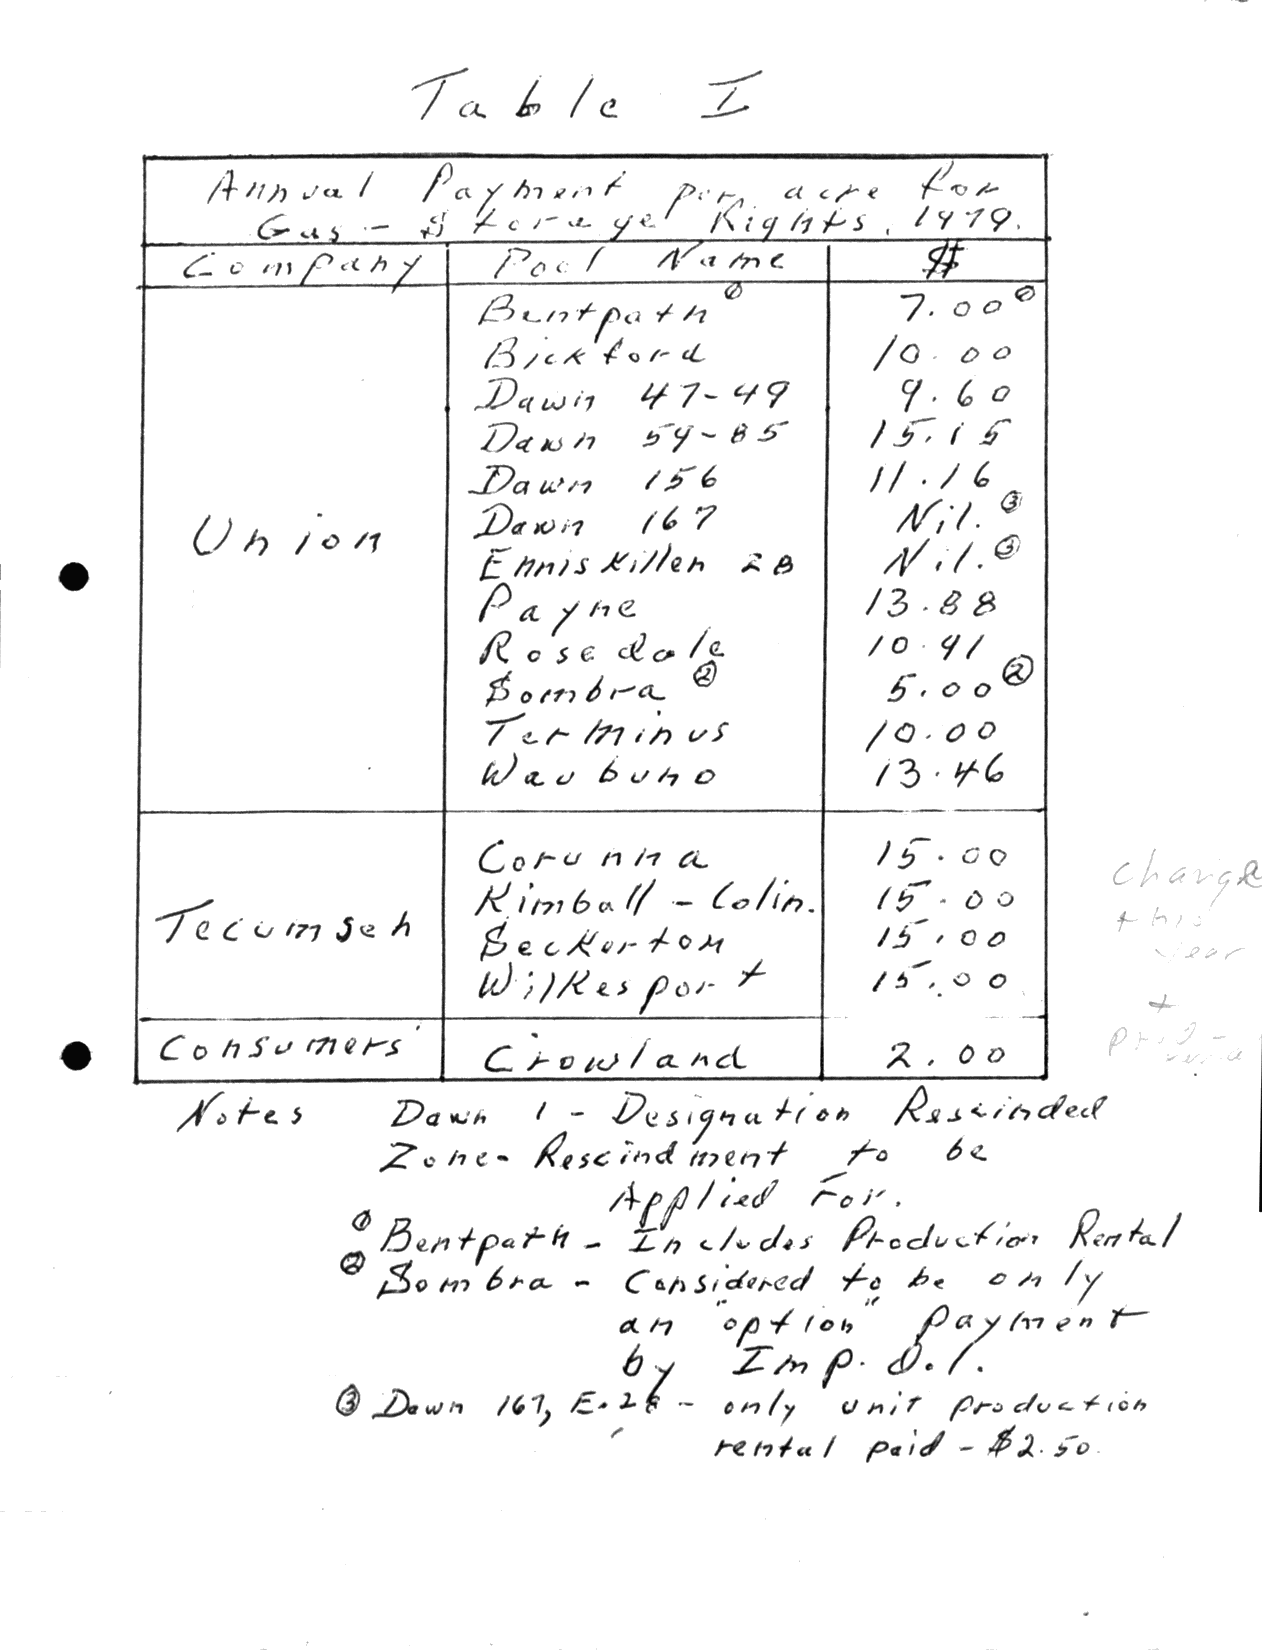 Table I
Annual Payment per acre for
Gas-Storage Rights, 1979.
Company Pool Name $
Bentpath ① 7.00 ①
Bickford 10.00
Dawn 47-49 9.60
Dawn 59-85 15.15
Dawn 156 11.16
Dawn 167 Nil. ③
Union
Enniskillen 28 Nil. ③
Payne 13.88
Rosedale 10.91
Sombra ② 5.00 ②
Terminus 10.00
Waubuno 13.46
Corunna 15.00
Kimball-Colin. 15.00
Tecumseh
Seckerton 15.00
Wilkesport 15.00
Consumers' Crowland 2.00
change
this
year
+
Notes Dawn 1 - Designation Rescinded
Zone- Rescindment to be
Applied For.
① Bentpath - Includes Production Rental
② Sombra - Considered to be only
an "option" payment
by Imp. O.l.
③ Dawn 167, E.28 - only unit production
rental paid - $2.50.